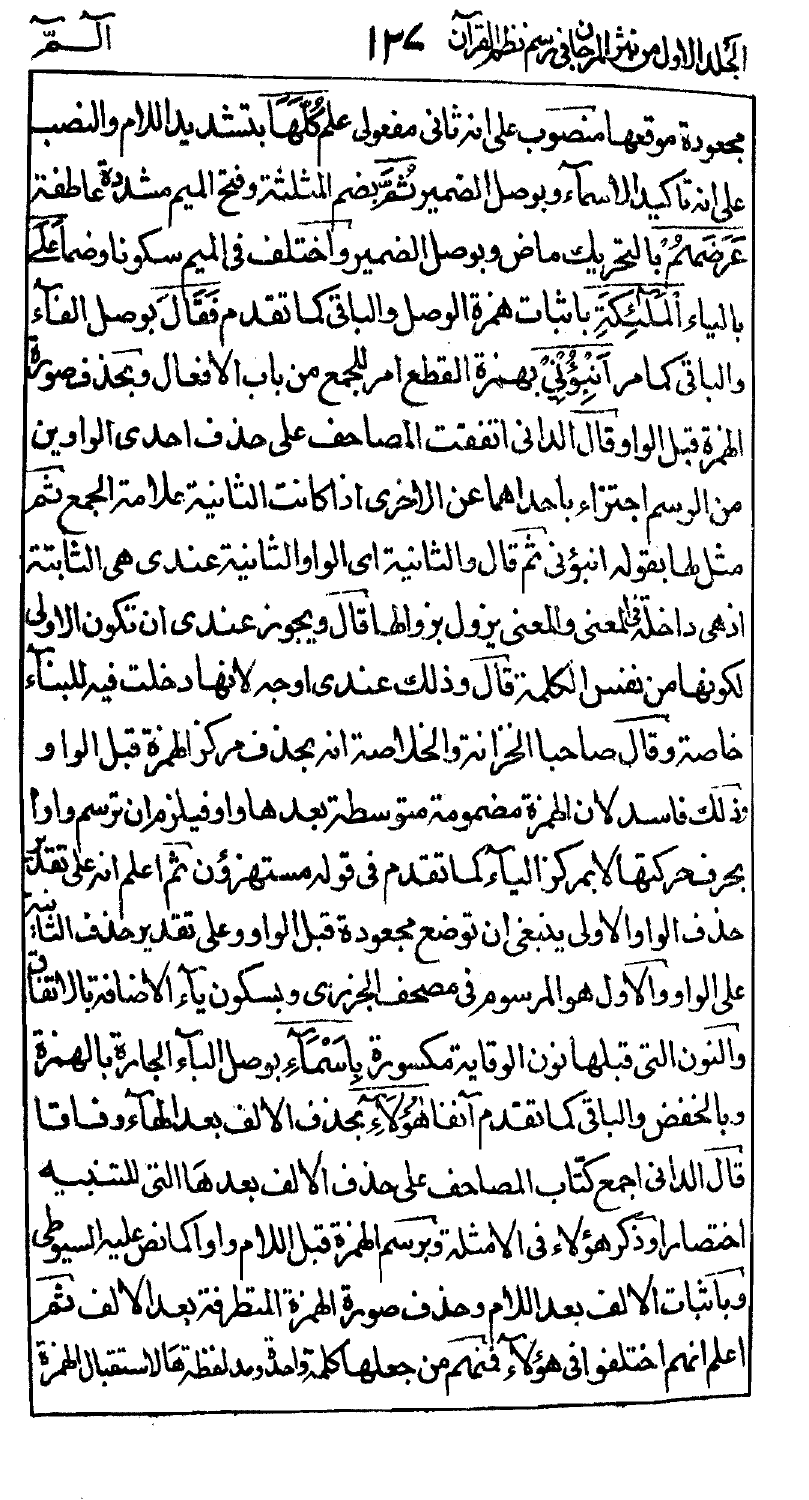 الجلد الاول من نثر المرجان فى رسم نظم القرآن ١٣٧ الٓـمّٓ
مجعودة موقعها منصوب على انه ثانى مفعولى علم كُلَّهَا بتشديد اللام والنصب
على انه تاكيد الاسمآء وبوصل الضمير ثُمَّ بضم المثلثة وفتح الميم مشددة عاطفة
عَرَضَهُمْ بالتحريك ماض وبوصل الضمير واختلف فى الميم سكونا وضما عَلَى
بالياء الْمَلٰٓئِكَةِ باثبات همزة الوصل والباقى كما تقدم فَقَالَ بوصل الفآء
والباقى كما مر اَنْبِؤُنِىْ بهمزة القطع امر للجمع من باب الافعال وبحذف صورة
الهمزة قبل الواو قال الدانى اتفقت المصاحف على حذف احدى الواوين
من الرسم اجتزاء باحداهما عن الاخرى اذا كانت الثانية علامة الجمع ثم
مثل لها بقوله انبؤنى ثم قال والثانية اى الواو الثانية عندى هى الثابتة
اذ هى داخلة فى المعنى والمعنى يزول بزوالها قال ويجوز عندى ان تكون الاولى
لكونها من نفس الكلمة قال وذلك عندى اوجه لانها دخلت فيه للبنآء
خاصة وقال صاحبا الخزانة والخلاصة انه بحذف مركز الهمزة قبل الواو
وذلك فاسد لان الهمزة مضمومة متوسطة بعدها واو فيلزم ان ترسم واوا
بحرف حركتها لا بمركز اليآء كما تقدم فى قوله مستهزؤن ثم اعلم انه على تقدير
حذف الواو الاولى ينبغى ان توضع مجعودة قبل الواو وعلى تقدير حذف الثانية
على الواو والاول هو المرسوم فى مصحف الجزرى وبسكون يآء الاضافة بالاتفاق
والنون التى قبلها نون الوقاية مكسورة بِاَسْمَآءِ بوصل البآء الجارة بالهمزة
وبالخفض والباقى كما تقدم آنفا هٰٓؤُلَآءِ بحذف الالف بعد الهآء وفاقا
قال الدانى اجمع كتّاب المصاحف على حذف الالف بعد هَا التى للتنبيه
اختصارا وذكر هؤلاء فى الامثلة وبرسم الهمزة قبل اللام واوا كما نص عليه السيوطى
وباثبات الالف بعد اللام وحذف صورة الهمزة المتطرفة بعد الالف ثم
اعلم انهم اختلفوا فى هؤلآء فمنهم من جعلها كلمة واحدة ومد لفظة هَا لاستقبال الهمزة